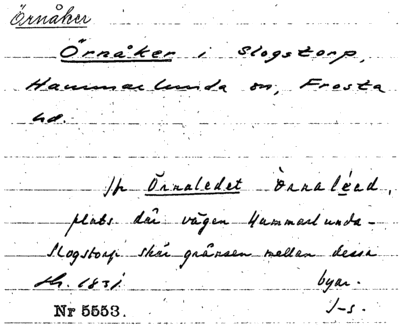 Örnåker
Örnåker i Slogstorp,
Hammarlunda sn, Frosta
hd.
Jfr Örnaledet Örnaléad,
plats där vägen Hammarlunda-
Slogstorp skär gränsen mellan dessa
byar.
1831
Nr 5553.
J-s.